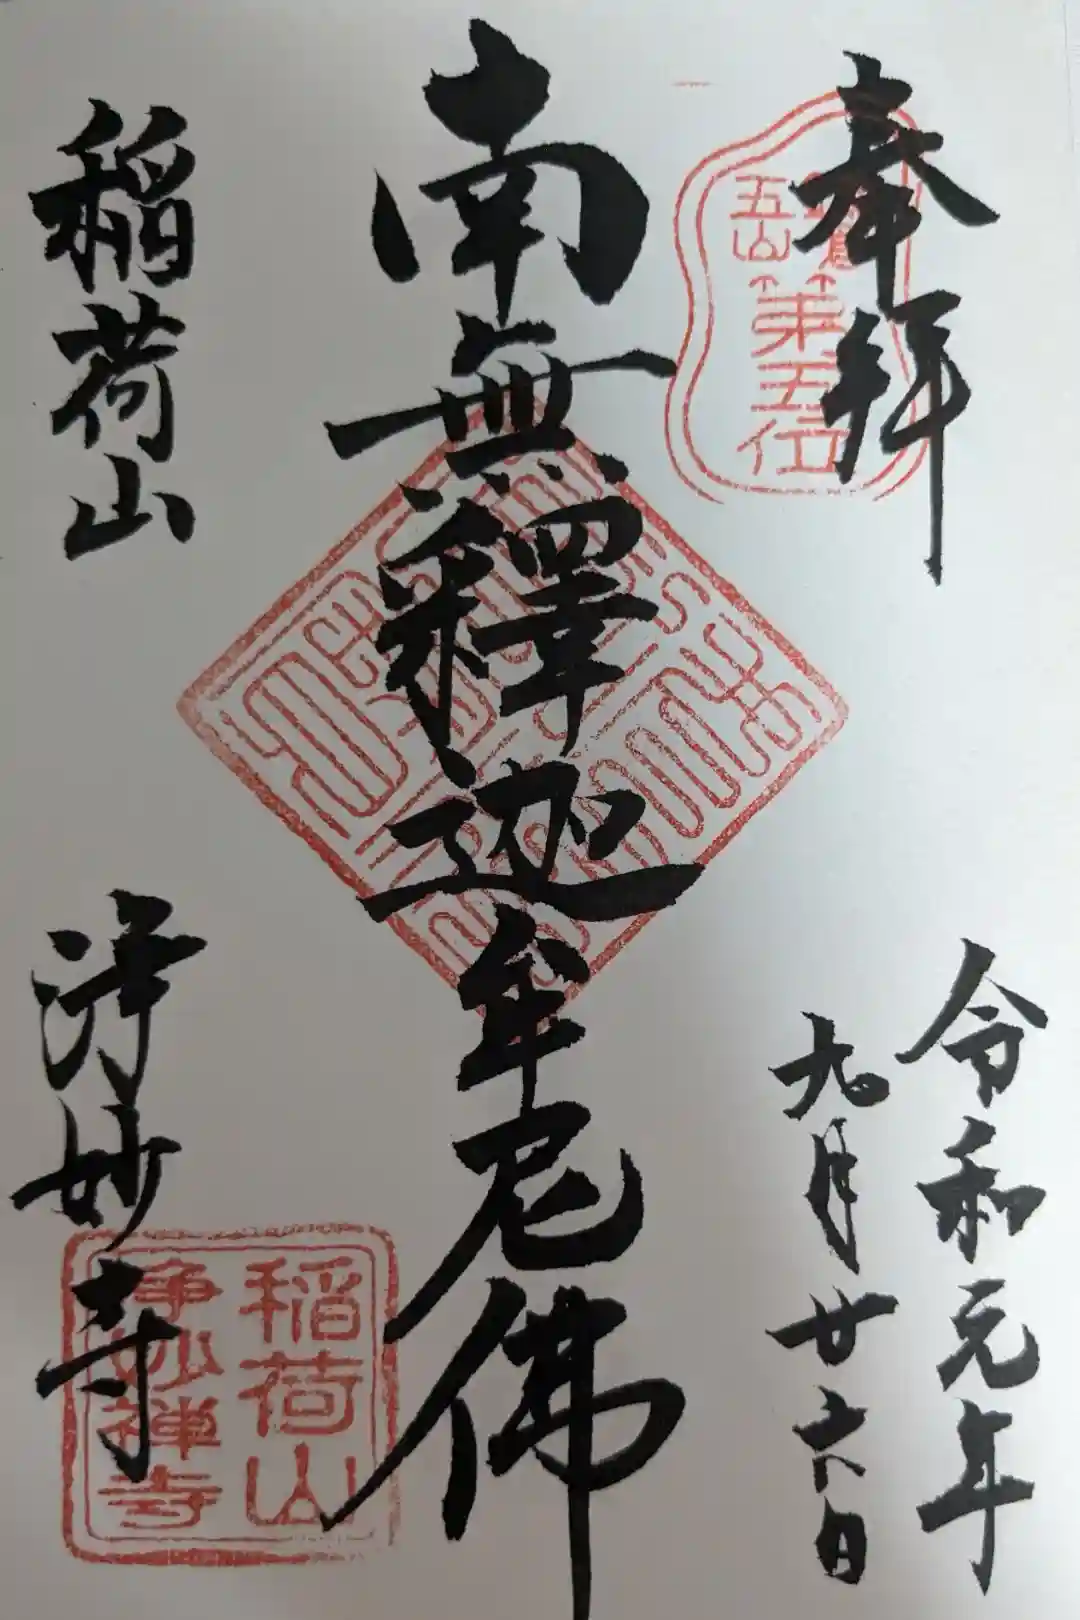 奉拝
鎌倉
五山
第五位
令和元年
九月廿六日
南無釋迦牟尼佛
稲荷山
浄妙寺
稲荷山
浄妙禅寺